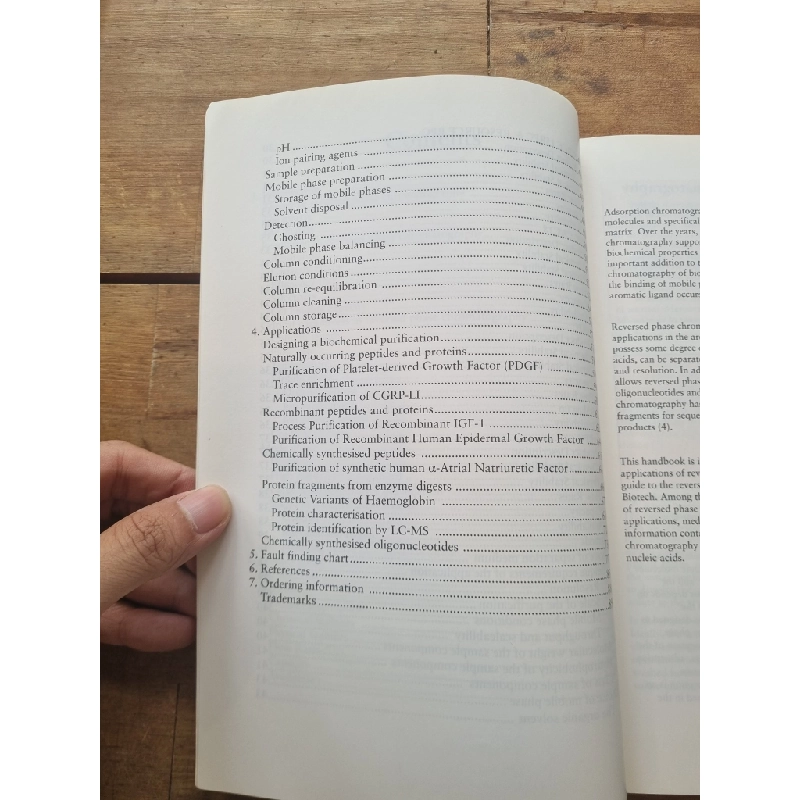 pH
Ion pairing agents
Sample preparation
Mobile phase preparation
Storage of mobile phases
Solvent disposal
Detection
Ghosting
Mobile phase balancing
Column conditioning
Elution conditions
Column re-equilibration
Column cleaning
Column storage
4. Applications
Designing a biochemical purification
Naturally occurring peptides and proteins
Purification of Platelet-derived Growth Factor (PDGF)
Trace enrichment
Micropurification of CGRP-LI
Recombinant peptides and proteins
Process Purification of Recombinant IGF-1
Purification of Recombinant Human Epidermal Growth Factor
Chemically synthesised peptides
Purification of synthetic human α-Atrial Natriuretic Factor
Protein fragments from enzyme digests
Genetic Variants of Haemoglobin
Protein characterisation
Protein identification by LC-MS
Chemically synthesised oligonucleotides
5. Fault finding chart
6. References
7. Ordering information
Trademarks
Adsorption chromatogra
molecules and specifical
matrix. Over the years,
chromatography suppo
biochemical properties
important addition to t
chromatography of bio
the binding of mobile p
aromatic ligand occurs
Reversed phase chrom
applications in the are
possess some degree o
acids, can be separate
and resolution. In ad
allows reversed phas
oligonucleotides and
chromatography ha
fragments for seque
products (4).
This handbook is i
applications of rev
guide to the revers
Biotech. Among th
of reversed phase
applications, med
information conta
chromatography
nucleic acids.